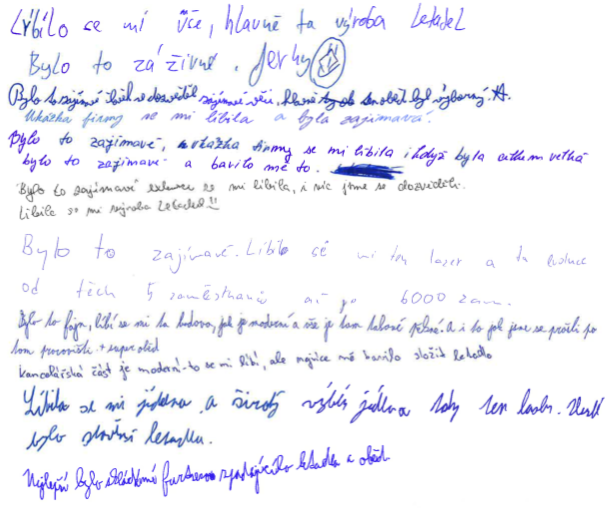 Líbilo se mi vše, hlavně ta výroba letadel
Bylo to záživné. Jerky
Bylo to zajímavé dozvěděl zajímavé věci, oběd byl výborný
Ukázka firmy se mi líbila a byla zajímavá.
Bylo to zajímavé, ukázka firmy se mi líbila i když byla celkem velká
bylo to zajímavé a bavilo mě to.
Bylo to zajímavé exkurze se mi líbila, i víc jsme se dozvěděli.
Líbila se mi výroba letadel!!
Bylo to zajímavé. Líbilo se mi ten laser a ta
od těch 5 zaměstnanců až po 6000 zam.
Bylo to fajn, líbí se mi ta budova, jak je moderní a vše je tam takové pěkné. A i to jak jsme se prošli po
tom pracovišti + super oběd
kancelářská část je moderní to se mi líbí, ale nejvíce mě bavilo složit letadlo
Líbila se mi jídelna a široký výběr jídla a taky ten laser.
bylo stavění letadla.
Nejlepší bylo letadla a oběd